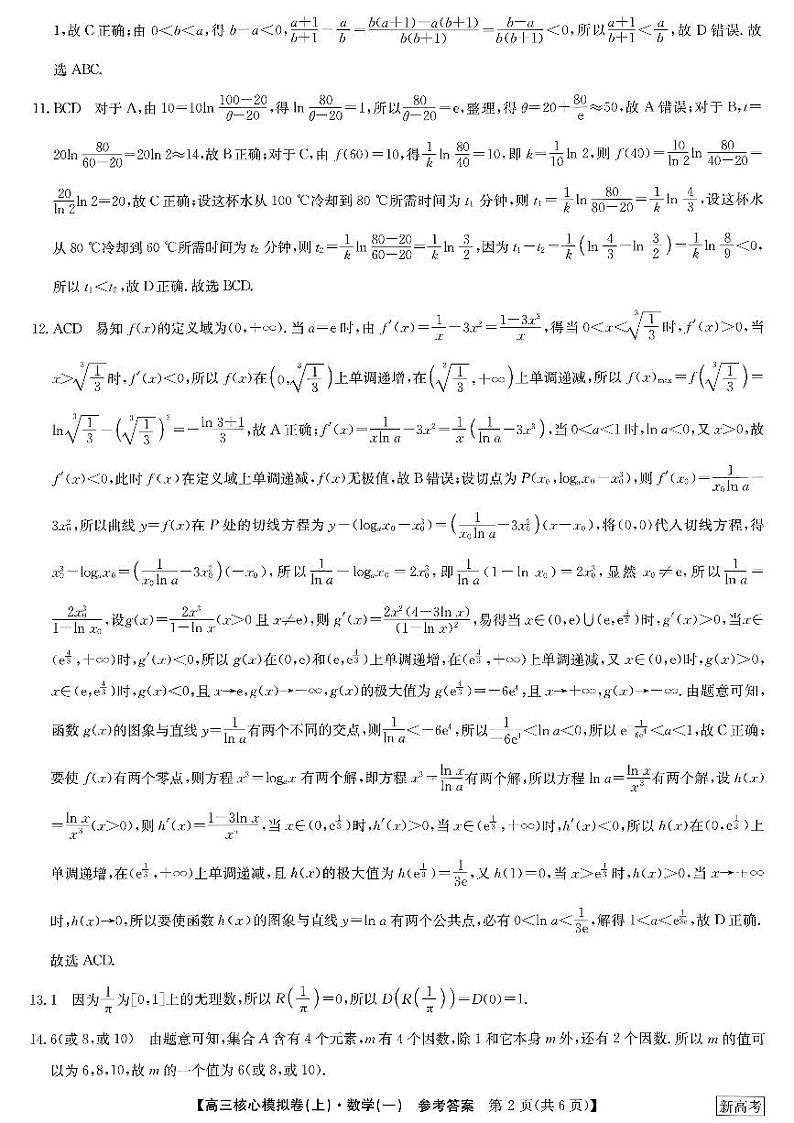 1,故C正确;由0<b<a,得b-a<0,$\frac{a+1}{b+1}-\frac{a}{b}=\frac{b(a+1)-a(b+1)}{b(b+1)}=\frac{b-a}{b(b+1)}<0$,所以$\frac{a+1}{b+1}<\frac{a}{b}$,故D错误.故
选ABC.
11.BCD 对于A,由$10=10\ln\frac{100-20}{\theta-20}$,得$\ln\frac{80}{\theta-20}=1$,所以$\frac{80}{\theta-20}=e$,整理,得$\theta=20+\frac{80}{e}≈50$,故A错误;对于B,t=
$20\ln\frac{80}{60-20}=20\ln 2≈14$,故B正确;对于C,由f(60)=10,得$\frac{1}{k}\ln\frac{80}{40}=10$,即$k=\frac{1}{10}\ln 2$,则$f(40)=\frac{10}{\ln 2}\ln\frac{80}{40-20}=$
$\frac{20}{\ln 2}\ln 2=20$,故C正确;设这杯水从100 ℃冷却到80 ℃所需时间为$t_1$分钟,则$t_1=\frac{1}{k}\ln\frac{80}{80-20}=\frac{1}{k}\ln\frac{4}{3}$,设这杯水
从80 ℃冷却到60 ℃所需时间为$t_2$分钟,则$t_2=\frac{1}{k}\ln\frac{80-20}{60-20}=\frac{1}{k}\ln\frac{3}{2}$,因为$t_1-t_2=\frac{1}{k}\left(\ln\frac{4}{3}-\ln\frac{3}{2}\right)=\frac{1}{k}\ln\frac{8}{9}<0$,
所以$t_1<t_2$,故D正确.故选BCD.
12.ACD 易知f(x)的定义域为(0,+∞).当a=e时,由$f'(x)=\frac{1}{x}-3x^2=\frac{1-3x^3}{x}$,得当$0<x<\sqrt[3]{\frac{1}{3}}$时,f'(x)>0,当
$x>\sqrt[3]{\frac{1}{3}}$时,f'(x)<0,所以f(x)在$\left(0,\sqrt[3]{\frac{1}{3}}\right)$上单调递增,在$\left(\sqrt[3]{\frac{1}{3}},+∞\right)$上单调递减,所以$f(x)_{max}=f\left(\sqrt[3]{\frac{1}{3}}\right)=$
$\ln\sqrt[3]{\frac{1}{3}}-\left(\sqrt[3]{\frac{1}{3}}\right)^3=-\frac{\ln 3+1}{3}$,故A正确;$f'(x)=\frac{1}{x\ln a}-3x^2=\frac{1}{x}\left(\frac{1}{\ln a}-3x^3\right)$,当0<a<1时,ln a<0,又x>0,故
f'(x)<0,此时f(x)在定义域上单调递减,f(x)无极值,故B错误;设切点为$P(x_0,\log_a x_0-x_0^3)$,则$f'(x_0)=\frac{1}{x_0\ln a}-$
$3x_0^2$,所以曲线y=f(x)在P处的切线方程为$y-(\log_a x_0-x_0^3)=\left(\frac{1}{x_0\ln a}-3x_0^2\right)(x-x_0)$,将(0,0)代入切线方程,得
$x_0^3-\log_a x_0=\left(\frac{1}{x_0\ln a}-3x_0^2\right)(-x_0)$,所以$\frac{1}{\ln a}-\log_a x_0=2x_0^3$,即$\frac{1}{\ln a}(1-\ln x_0)=2x_0^3$,显然$x_0≠e$,所以$\frac{1}{\ln a}=$
$\frac{2x_0^3}{1-\ln x_0}$,设$g(x)=\frac{2x^3}{1-\ln x}$(x>0且x≠e),则$g'(x)=\frac{2x^2(4-3\ln x)}{(1-\ln x)^2}$,易得当$x∈(0,e)∪(e,e^{\frac{4}{3}})$时,g'(x)>0,当x∈
$(e^{\frac{4}{3}},+∞)$时,g'(x)<0,所以g(x)在(0,e)和$(e,e^{\frac{4}{3}})$上单调递增,在$(e^{\frac{4}{3}},+∞)$上单调递减,又x∈(0,e)时,g(x)>0,
$x∈(e,e^{\frac{4}{3}})$时,g(x)<0,且x→e,g(x)→-∞,g(x)的极大值为$g(e^{\frac{4}{3}})=-6e^4$,且x→+∞,g(x)→-∞.由题意可知,
函数g(x)的图象与直线$y=\frac{1}{\ln a}$有两个不同的交点,则$\frac{1}{\ln a}<-6e^4$,所以$\frac{1}{-6e^4}<\ln a<0$,所以$e^{-\frac{1}{6e^4}}<a<1$,故C正确;
要使f(x)有两个零点,则方程$x^3=\log_a x$有两个解,即方程$x^3=\frac{\ln x}{\ln a}$有两个解,所以方程$\ln a=\frac{\ln x}{x^3}$有两个解,设h(x)
$=\frac{\ln x}{x^3}$(x>0),则$h'(x)=\frac{1-3\ln x}{x^4}$,当$x∈(0,e^{\frac{1}{3}})$时,h'(x)>0,当$x∈(e^{\frac{1}{3}},+∞)$时,h'(x)<0,所以h(x)在$(0,e^{\frac{1}{3}})$上
单调递增,在$(e^{\frac{1}{3}},+∞)$上单调递减,且h(x)的极大值为$h(e^{\frac{1}{3}})=\frac{1}{3e}$,又h(1)=0,当$x>e^{\frac{1}{3}}$时,h(x)>0,当x→+∞
时,h(x)→0,所以要使函数h(x)的图象与直线y=ln a有两个公共点,必有$0<\ln a<\frac{1}{3e}$,解得$1<a<e^{\frac{1}{3e}}$,故D正确.
故选ACD.
13.1 因为$\frac{1}{π}$为[0,1]上的无理数,所以$R\left(\frac{1}{π}\right)=0$,所以$D\left(R\left(\frac{1}{π}\right)\right)=D(0)=1$.
14.6(或8,或10) 由题意可知,集合A含有4个元素,m有4个因数,除1和它本身m外,还有2个因数.所以m的值可
以为6,8,10,故m的一个值为6(或8,或10).
【高三核心模拟卷(上)·数学(一) 参考答案 第2页(共6页)】 新高考